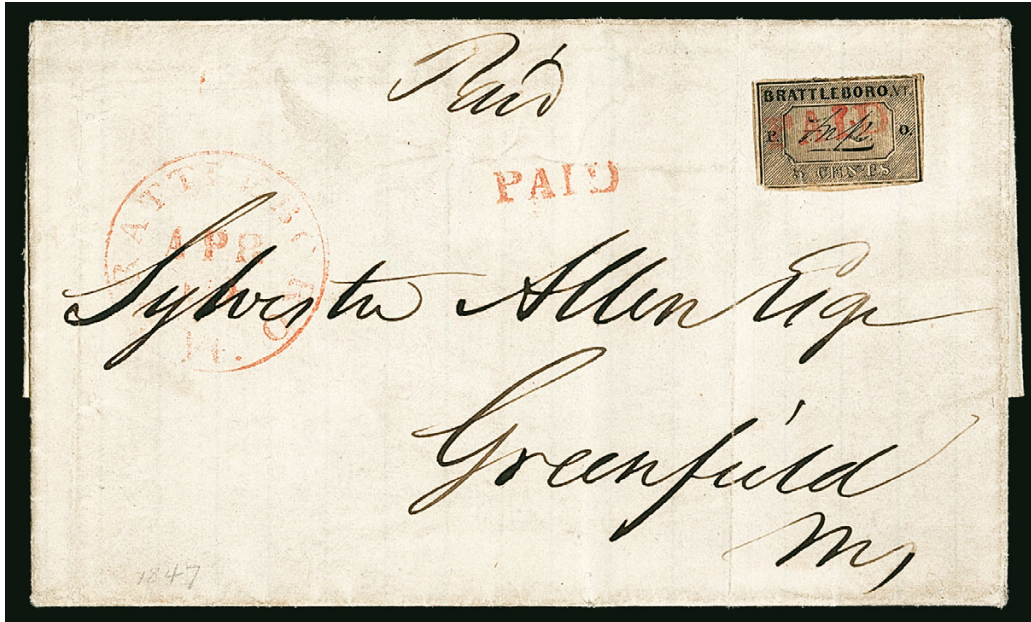 Paid
BRATTLEBORO, VT.
PAID
P. O.
5 CENTS
PAID
BRATTLEBORO
APR
Vt.
Sylvester Allen Esqr
Greenfield
Ms,
1847